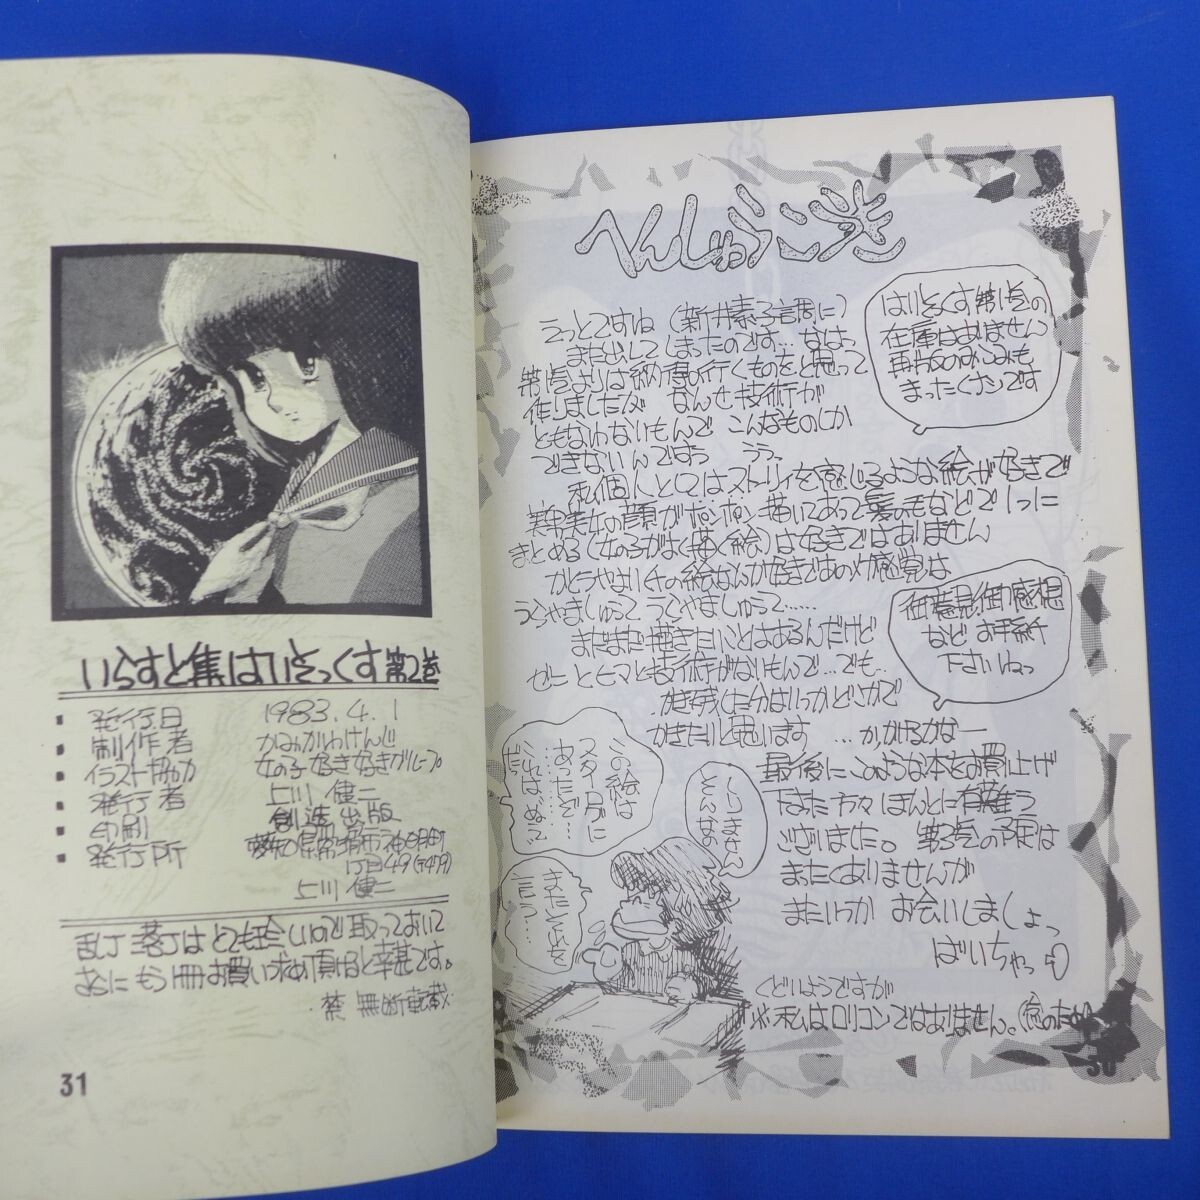 へんしゅうこうき
えっとですね(新井素子調に)
また出してしまったのです…なはは
第1巻よりは納得の行くものをと思って
作りましたが なんせ技術が
ともなわないもんで こんなものしか
できないんではう うう、
私個人としてはストーリィを感じるような絵が好きで
美少女の顔がポンポン描いてあって髪の毛などで1つに
まとめる(女の子がよく描く絵)は好きではありません
うらやましゅうて うらやましゅうて……
まだまだ描きたいことはあるんだけど
ぜーんとヒマとも技術がないもんで…でも…
かき残した分はいつかどこかで
かきたいと思います …か、かけるかなー
最後にこのような本をお買上げ
下さった方々ほんとに有難う
ございました。 第3巻の予定は
まったくありませんが
またいつか お会いしましょっ
ばいちゃっ
くどいようですが
※私はロリコンではありません。(念のため)
はいそっくす第1巻の
在庫はありません
再版の見込みも
まったくナシです
御意見、御感想
など お手紙
下さいねっ
この絵は
スターログに
あったぞ…
これはぬすで
だ
しりません
そんなの
またそんなことを
言う…
30
いらすと集はいそっくす 第2巻
発行日 1983.4.1
制作者 かみかわけんじ
イラスト協力 女の子好き好きグループ
発行者 上川 健二
印刷 創造出版
発行所 愛知県常滑市神明町
1丁目49(〒479)
上川 健二
乱丁 落丁は とても珍しいので 取っておいて
さらに もう1冊お買い求め頂けると幸甚です。
禁 無断転載
31